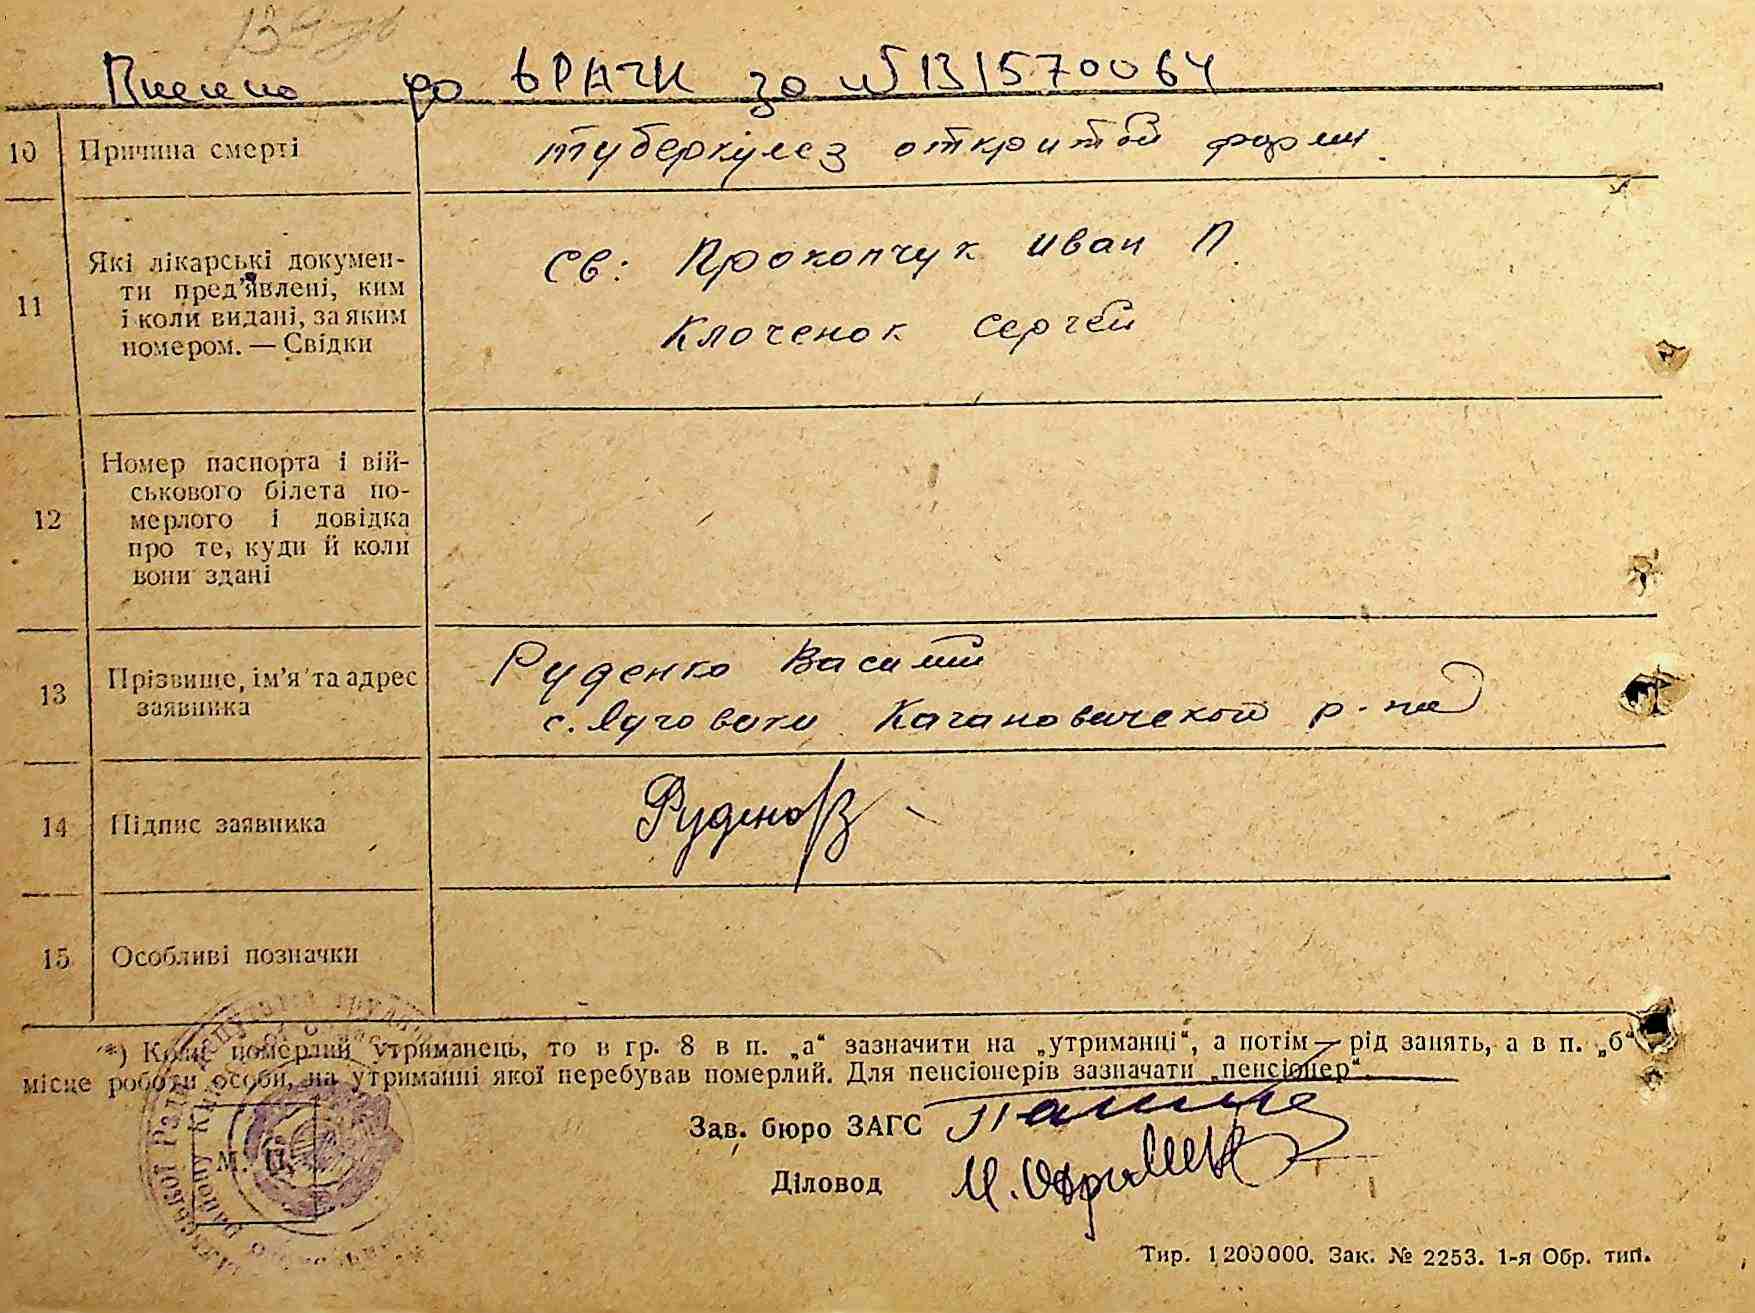 Внесено до ЄРАЧК за №131570064
10 Причина смерті туберкулез откритой форми.
11 Які лікарські докумен-
ти пред'явлені, ким
і коли видані, за яким
номером. — Свідки
св: Прокопчук Иван П.
Клоченок Сергей
12 Номер паспорта і вій-
ськового білета по-
мерлого і довідка
про те, куди й коли
вони здані
13 Прізвище, ім'я та адрес
заявника
Руденко Василий
с. Луговики Кагановической р-на
14 Підпис заявника Руденко В
15 Особливі позначки
*) Коли померлий утриманець, то в гр. 8 в п. „а“ зазначити на „утриманні“, а потім — рід занять, а в п. „б“
місце роботи особи, на утриманні якої перебував померлий. Для пенсіонерів зазначати „пенсіонер“.
Зав. бюро ЗАГС
М. П.
Діловод
Тир. 1200000. Зак. № 2253. 1-я Обр. тип.